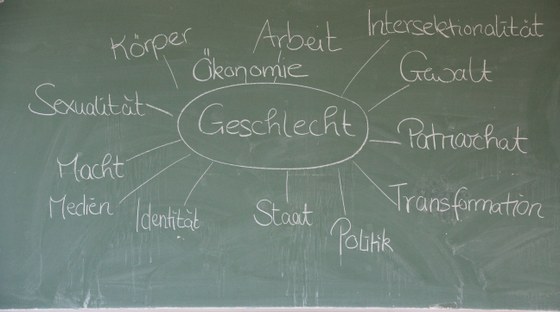 Körper
Arbeit
Intersektionalität
Ökonomie
Gewalt
Sexualität
Geschlecht
Patriarchat
Macht
Medien
Identität
Staat
Transformation
Politik